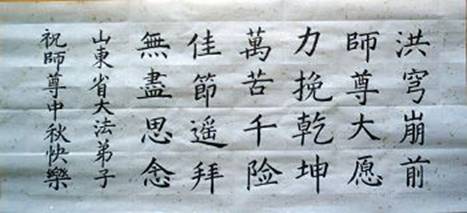 洪穹崩前
師尊大愿
力挽乾坤
萬苦千险
佳節遥拜
無盡思念
山東省大法弟子
祝師尊中秋快樂